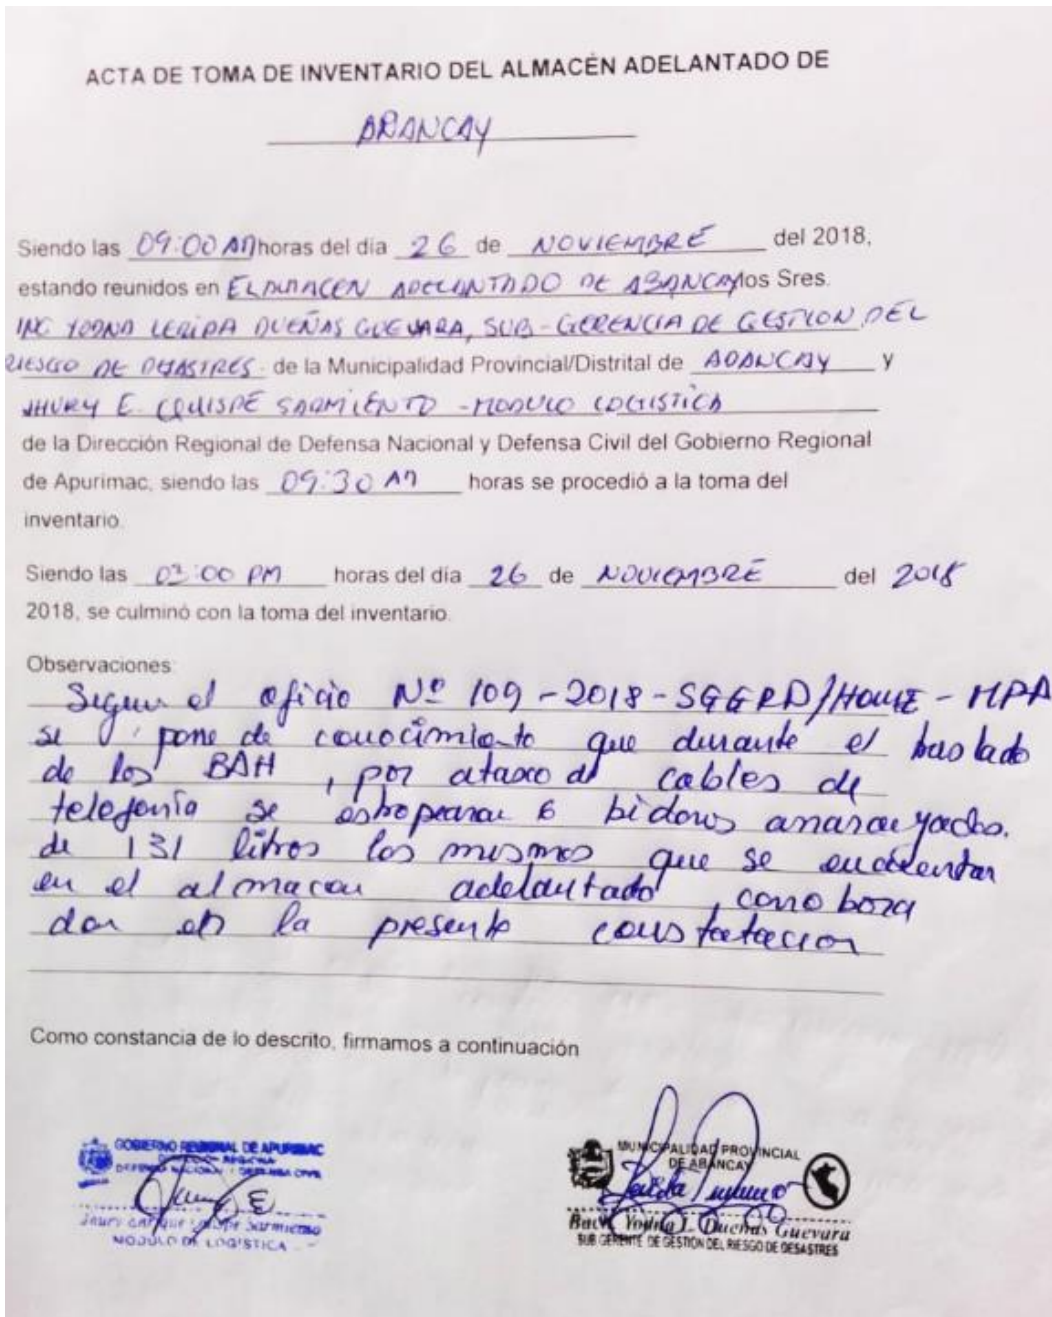 ACTA DE TOMA DE INVENTARIO DEL ALMACÉN ADELANTADO DE
ABANCAY
Siendo las 09:00 AM horas del día 26 de NOVIEMBRE del 2018,
estando reunidos en EL ALMACEN ADELANTADO DE ABANCAY los Sres.
ING YODNA LERIDA DUEÑAS GUEVARA, SUB-GERENCIA DE GESTION DEL
RIESGO DE DESASTRES de la Municipalidad Provincial/Distrital de ABANCAY y
JHURY E. QUISPE SARMIENTO - MODULO LOGISTICA
de la Dirección Regional de Defensa Nacional y Defensa Civil del Gobierno Regional
de Apurimac, siendo las 09:30 AM horas se procedió a la toma del
inventario.
Siendo las 03:00 PM horas del día 26 de NOVIEMBRE del 2018
2018, se culminó con la toma del inventario.
Observaciones:
Segun el oficio Nº 109-2018-SGGRD/ - MPA
se pone de conocimiento que durante el traslado
de los BAH, por de cables de
telefonía se estropearon 6 bidones anaranjados.
de 131 litros los mismos que se encuentan
en el almacen adelantado,
en la presente constatacion
Como constancia de lo descrito, firmamos a continuación
GOBIERNO REGIONAL DE APURIMAC
DEFENSA NACIONAL Y DEFENSA CIVIL
Jhury Enrique Quispe Sarmiento
MODULO DE LOGISTICA
MUNICIPALIDAD PROVINCIAL
DE ABANCAY
Bach. Yodna L. Dueñas Guevara
SUB GERENTE DE GESTION DEL RIESGO DE DESASTRES